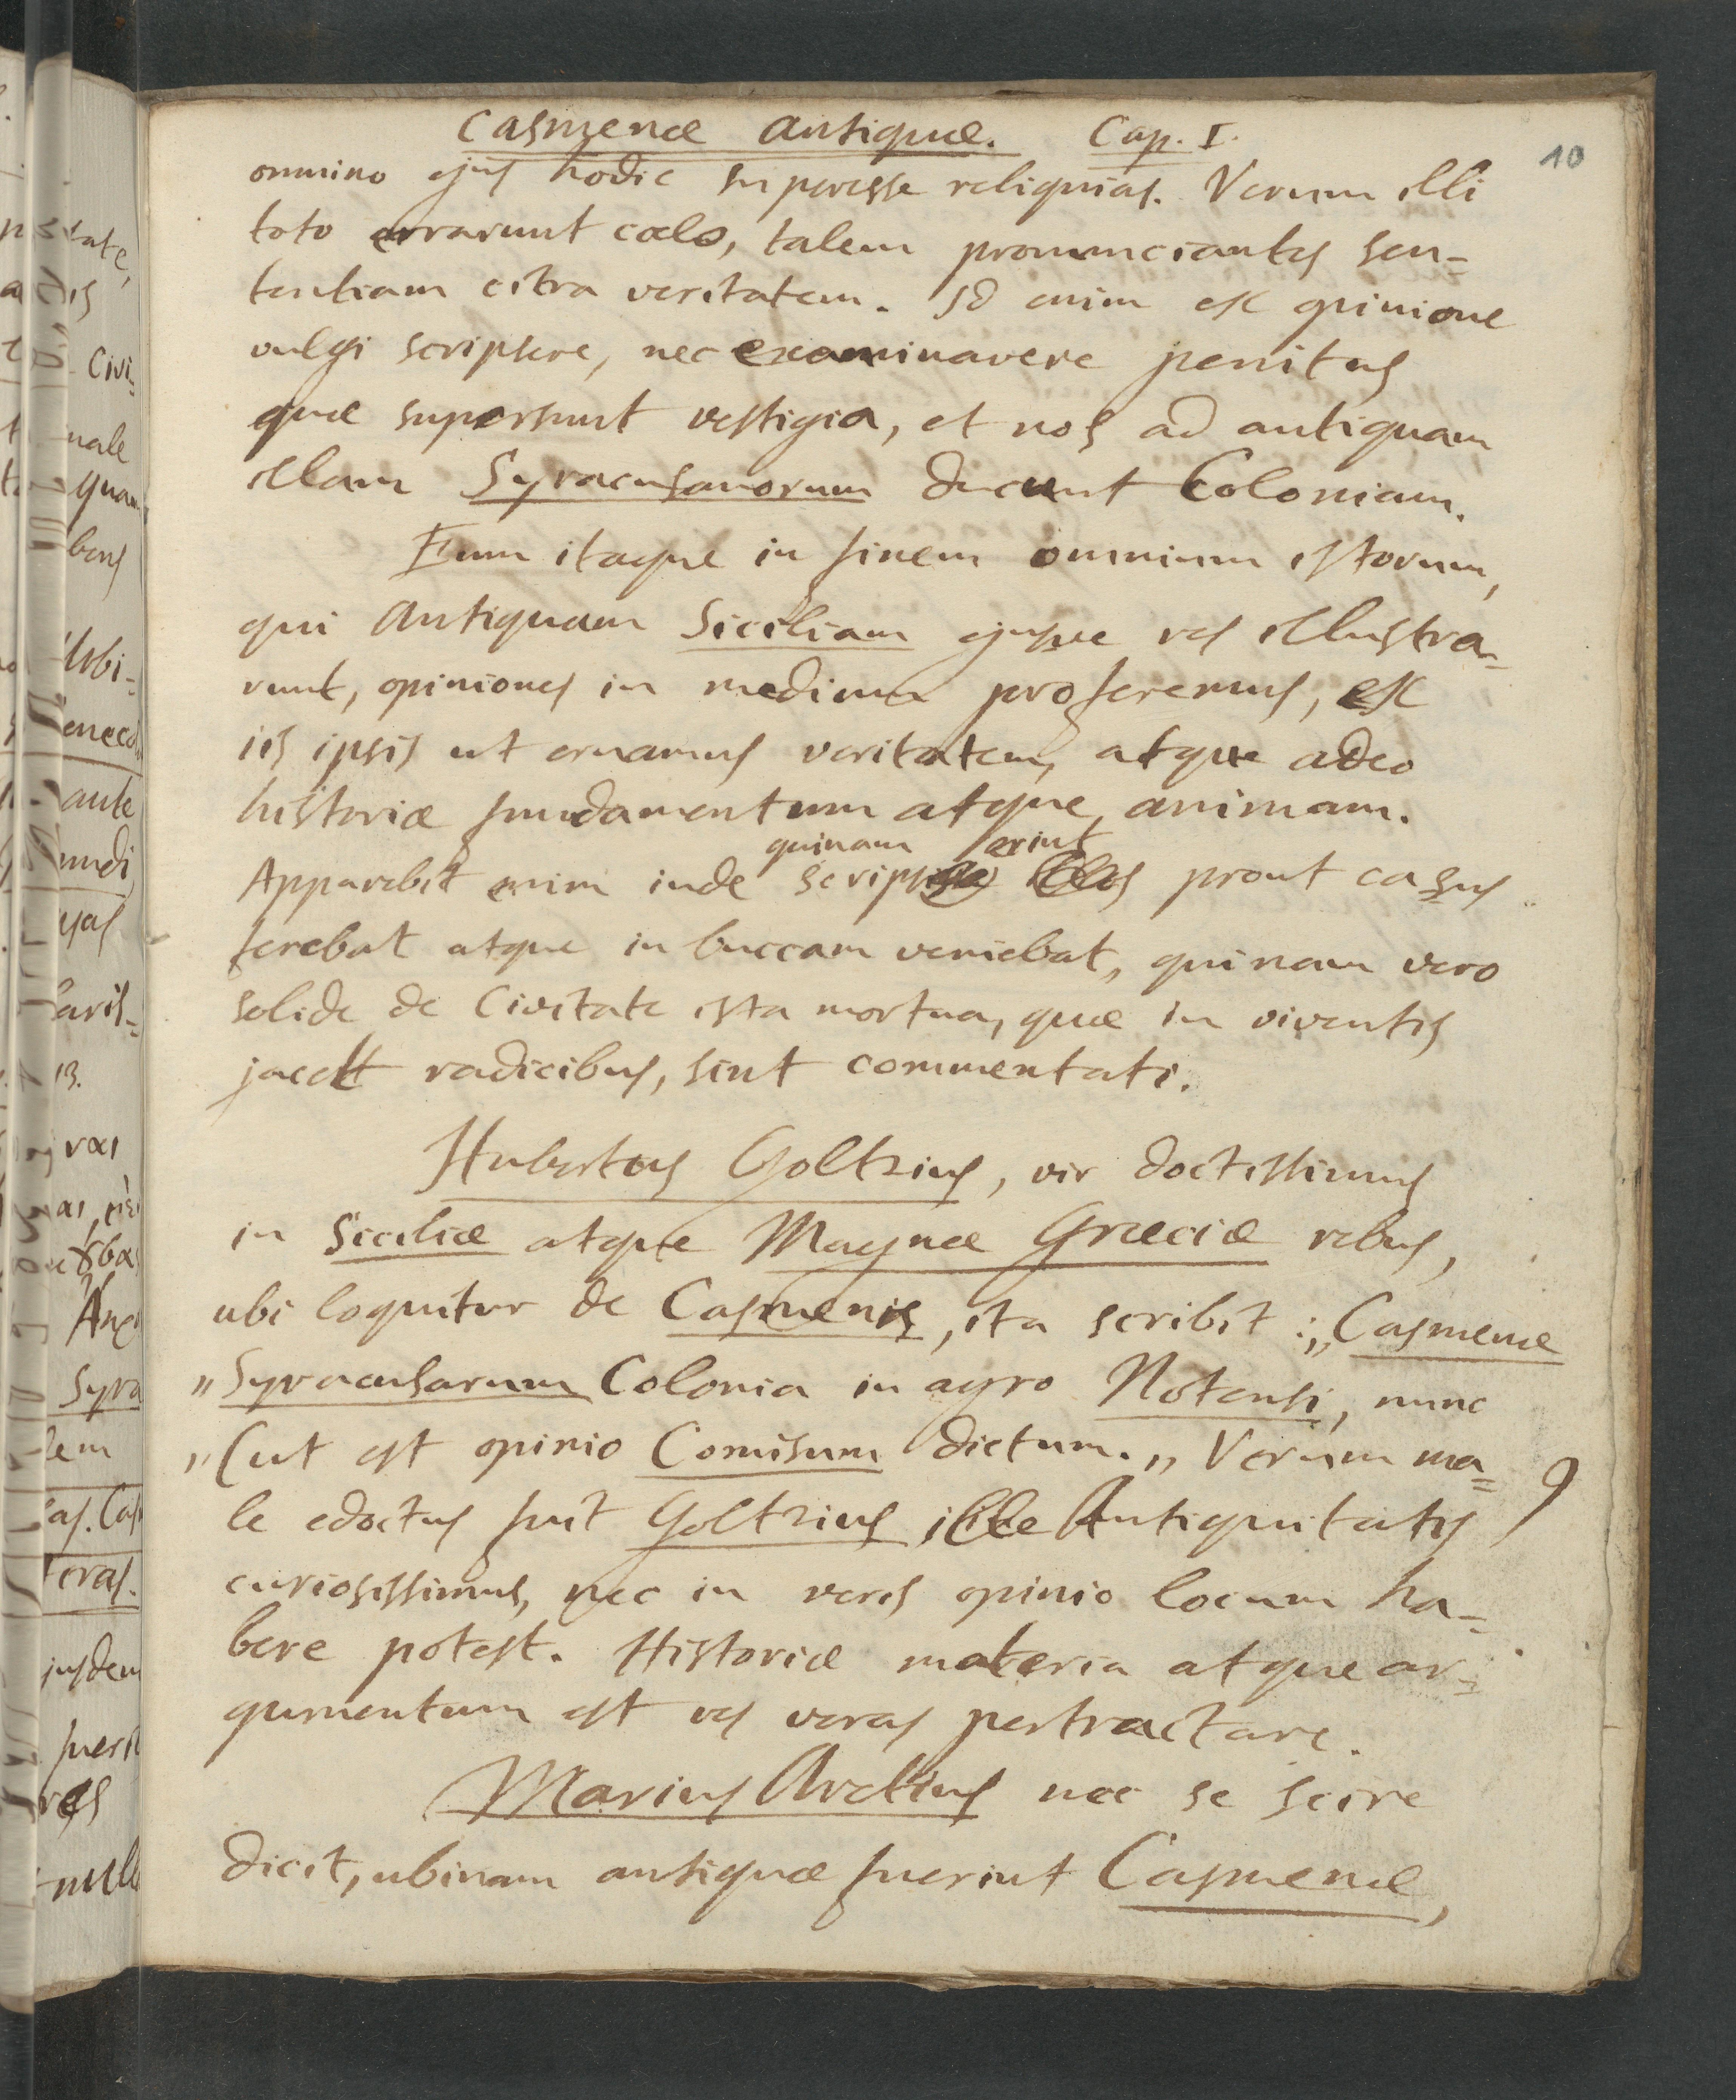 Casmenæ Antiquæ. Cap. I.
10
omnino ejus hodie superesse reliquias. Verum illi
toto errarunt cœlo, talem pronunciantes sen=
tentiam citra veritatem. Id enim ex opinione
vulgi scripsere, nec examinavere penitus
quæ supersunt vestigia, et nos ad antiquam
illam Syracusanorum ducunt Coloniam.
Eum itaque in finem omnium istorum,
qui Antiquam Siciliam ejusve res illustra=
runt, opiniones in medium proferemus, ex
iis ipsis ut eruamus veritatem, atque adeo
historiæ fundamentum atque animam.
quinam erint
Apparebit enim inde scrips prout casus
ferebat atque in buccam veniebat, quinam vero
solide de Civitate ista mortua, quæ in viventis
jacet radicibus, sint commentati.
Hubertus Goltzius, vir doctissimus
in Siciliæ atque Magnæ Græciæ rebus,
ubi loquitur de Casmenis, ita scribit : „Casmenæ
„Syracusarum Colonia in agro Notensi, nunc
„(ut est opinio Comisum dictum.„ Verum ma=
le edoctus fuit Goltzius ille Antiquitatis
curiosissimus, nec in veris opinio locum ha=
bere potest. Historiæ materia atque ar=
gumentum est res veras pertractare.
Marius Aretius nec se scire
dicit, ubinam antiquæ fuerint Casmenæ,